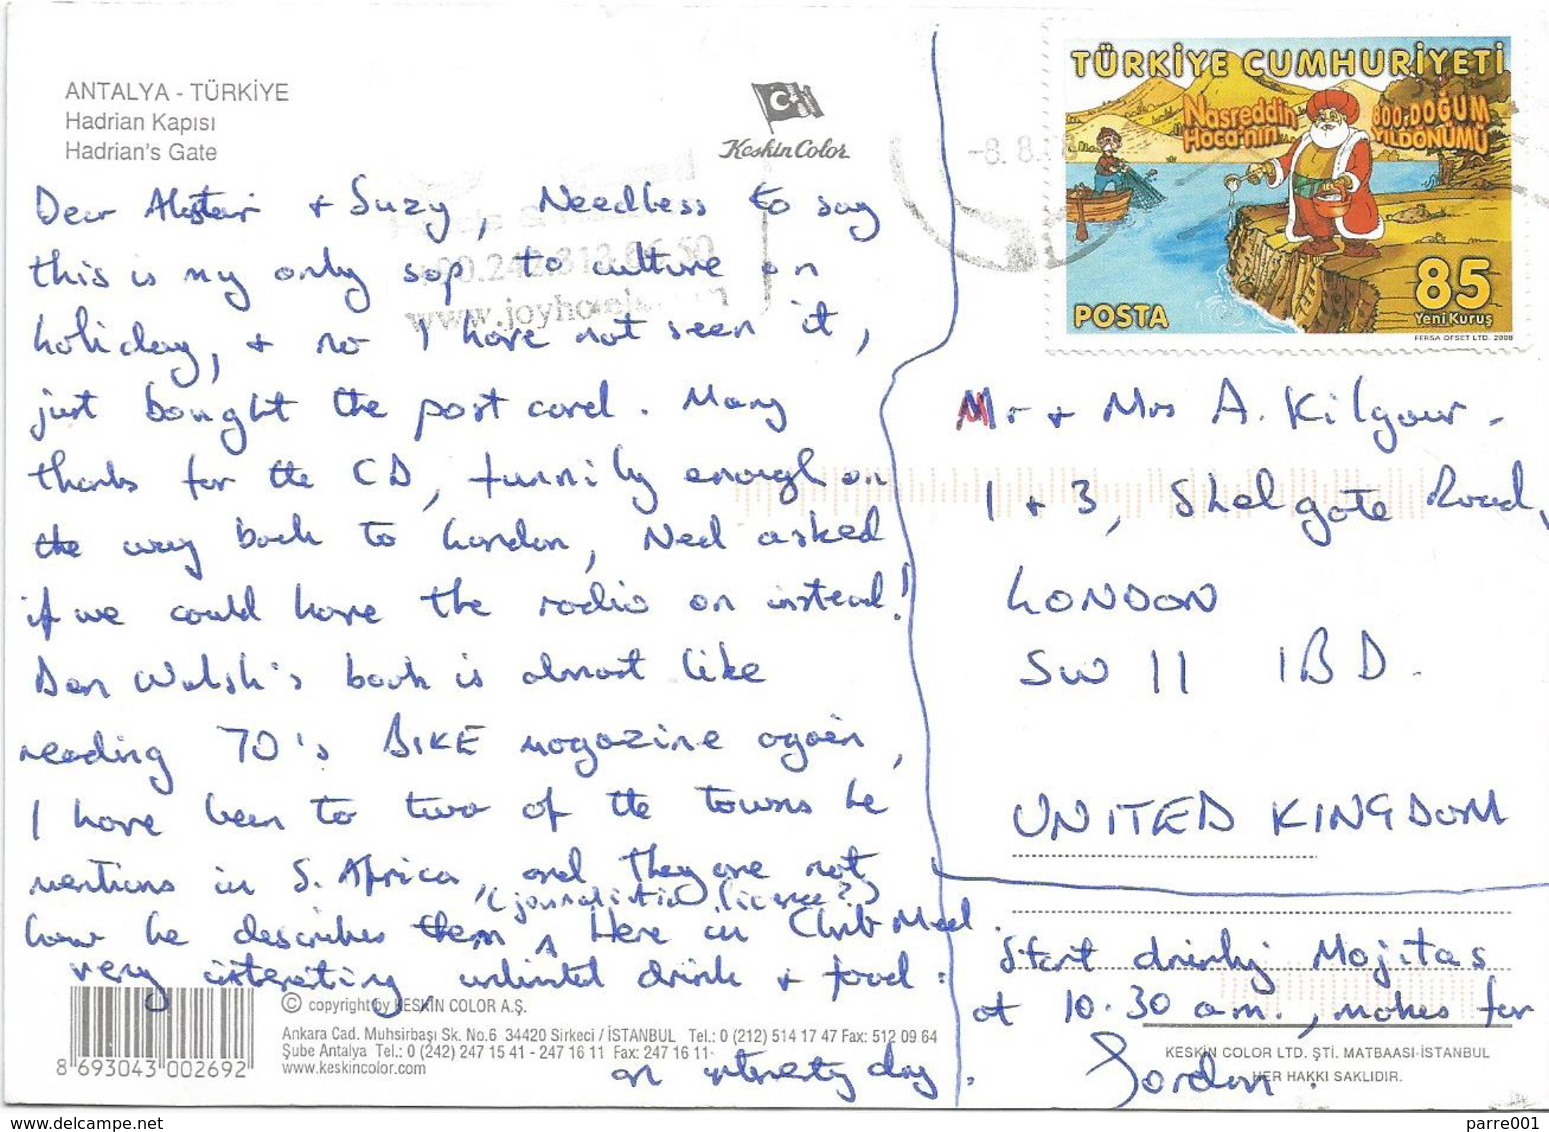 ANTALYA - TÜRKİYE
Hadrian Kapısı
Hadrian's Gate
Keskin Color
Dear Alistair + Suzy, Needless to say
this is my only sop to culture on
holiday, + no I have not seen it,
just bought the post card. Many
thanks for the CD, funnily enough on
the way back to London, Ned asked
if we could have the radio on instead!
Dan Walsh's book is almost like
reading 70's BIKE magazine again,
I have been to two of the towns he
mentions in S. Africa, and they are not
(journalistic licence?)
how he describes them. Here in Club Med
very interesting unlimited drink + food:
Start drinking Mojitas
at 10.30 a.m., makes for
an interesting day.
Gordon.
TÜRKİYE CUMHURİYETİ
Nasreddin Hoca'nın 800. DOĞUM YILDÖNÜMÜ
POSTA
85
Yeni Kuruş
FERSA OFSET LTD. 2008
-8. 8.
www.joyhotels
Mr + Mrs A. Kilgour.
1 + 3, Shelgate Road,
LONDON
SW 11 1BD.
UNITED KINGDOM
8 693043 002692
© copyright by KESKİN COLOR A.Ş.
Ankara Cad. Muhsirbaşı Sk. No.6 34420 Sirkeci / İSTANBUL Tel.: 0 (212) 514 17 47 Fax: 512 09 64
Şube Antalya Tel.: 0 (242) 247 15 41 - 247 16 11 Fax: 247 16 11
www.keskincolor.com
KESKİN COLOR LTD. ŞTİ. MATBAASI-İSTANBUL
HER HAKKI SAKLIDIR.
www.delcampe.net
parre001